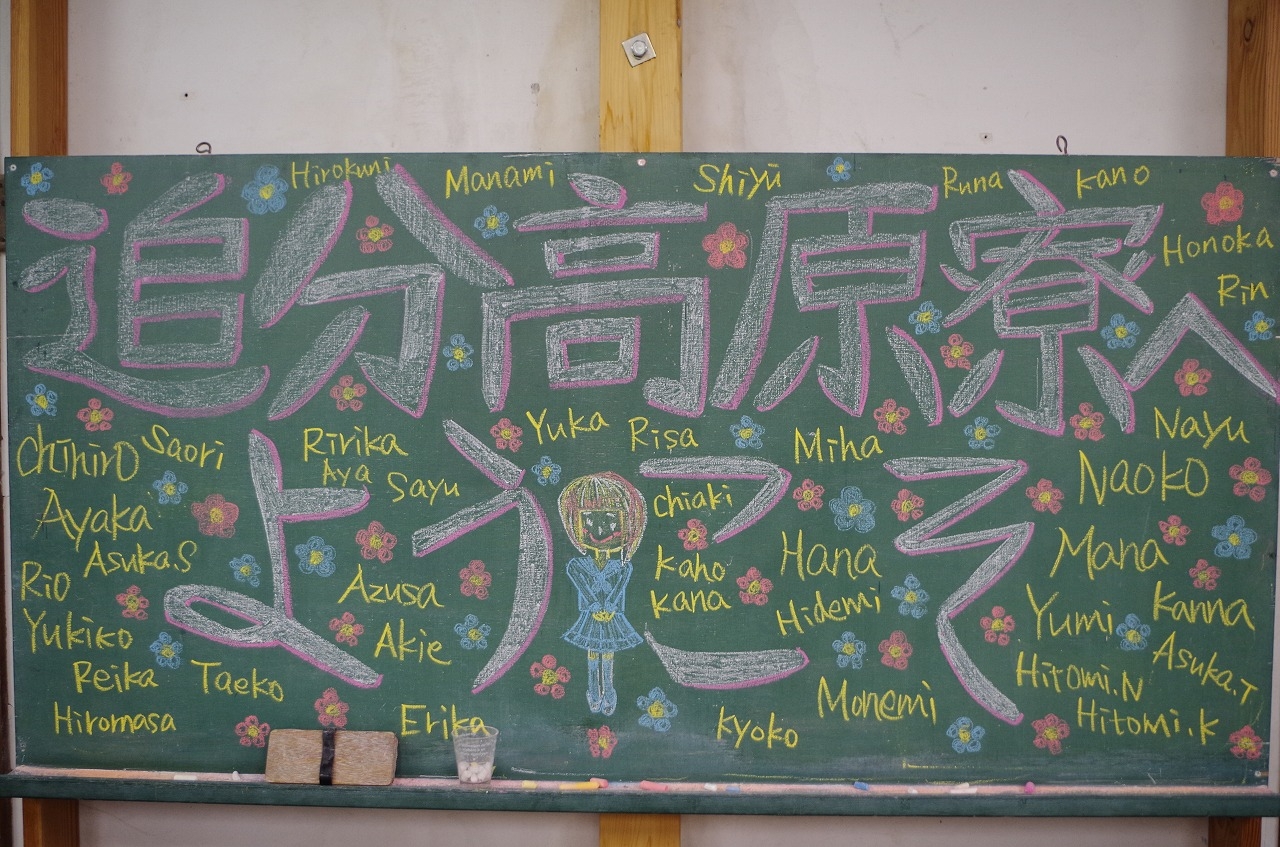 Hirokuni Manami Shiyū Runa Kano
追分高原寮へ
Honoka
Rin
ようこそ
Yuka Risa Miha Nayu
Chihiro Saori Ririka
Aya Sayu Chiaki Naoko
Ayaka
Asuka.S Hana Mana
Rio Azusa Kaho
Kana Hidemi Yumi Kanna
Yukiko Akie Asuka.T
Reika Taeko Monemi Hitomi.N
Hiromasa Erika Kyoko Hitomi.K